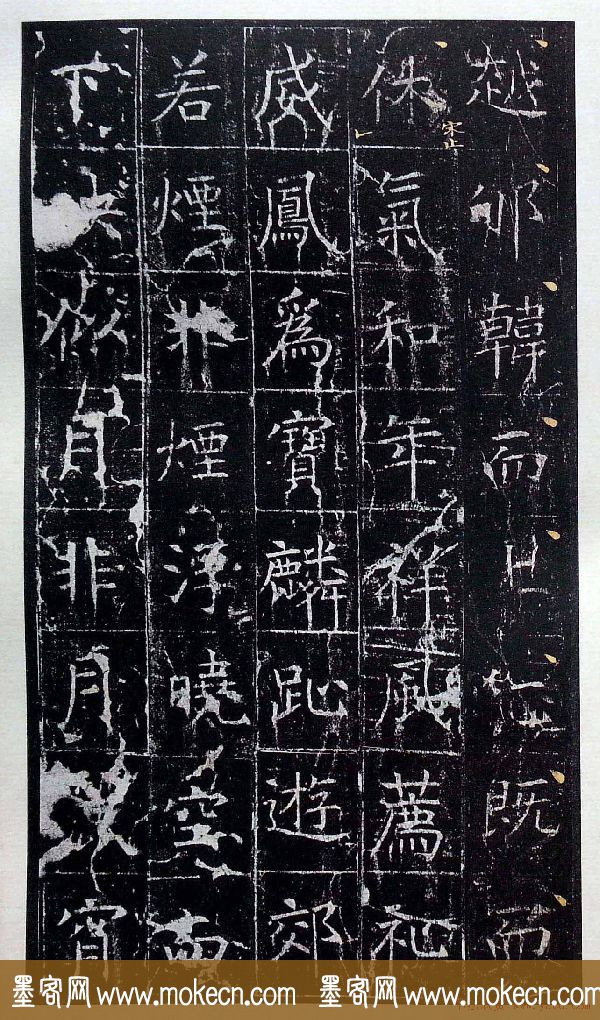 越韓而既而
休氣和年祥風薦祉
宋止
威鳳爲寶麟趾遊郊
若煙非煙浮曉空而
下映似月非月宵
墨客网 www.mokecn.com 墨客网 www.mokecn.com